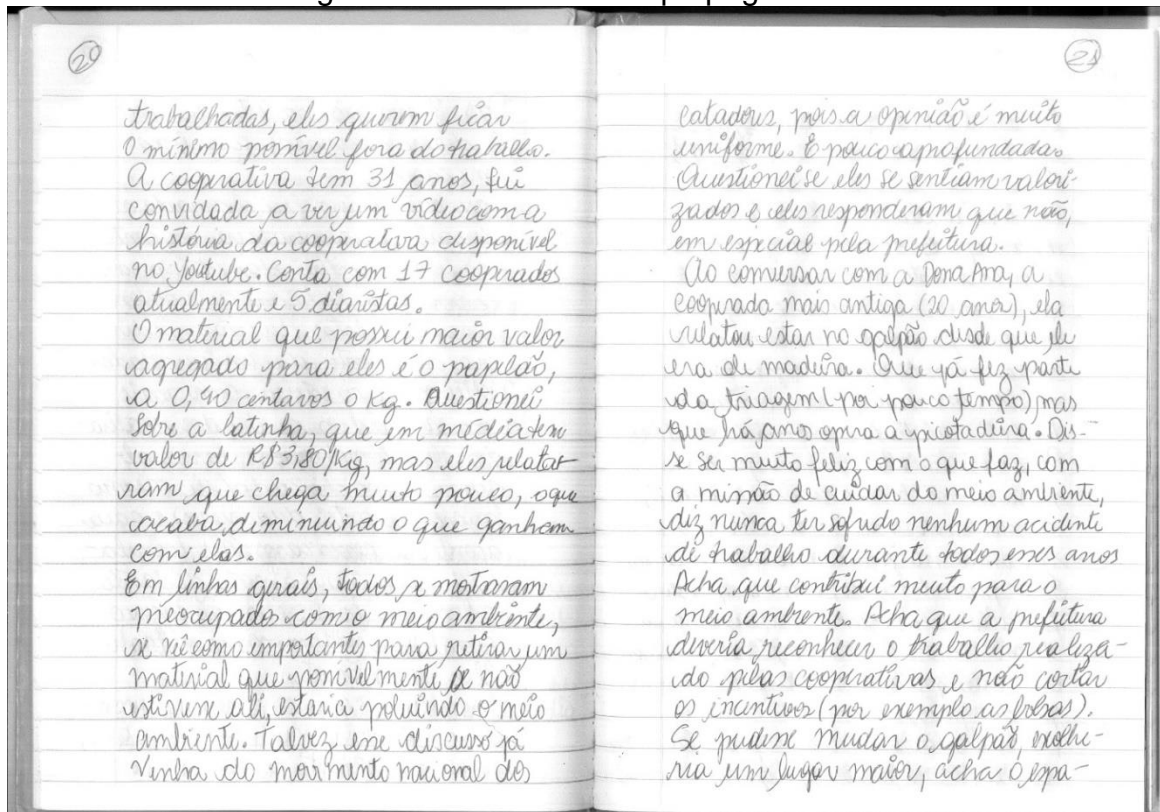 20
trabalhadas, eles querem ficar
o mínimo possível fora do trabalho.
A cooperativa tem 31 anos, fui
convidada a ver um vídeo com a
história da cooperativa disponível
no Youtube. Conta com 17 cooperados
atualmente e 5 diaristas.
O material que possui maior valor
agregado para eles é o papelão,
a 0,40 centavos o kg. Questionei
sobre a latinha, que em média tem
valor de R$3,80/Kg, mas eles relata-
ram que chega muito pouco, o que
acaba diminuindo o que ganham
com elas.
Em linhas gerais, todos se mostraram
preocupados com o meio ambiente,
se vê como importantes para retirar um
material que possivelmente se não
estivesse ali, estaria poluindo o meio
ambiente. Talvez esse discurso já
venha do movimento nacional dos
21
catadores, pois a opinião é muito
uniforme. E pouco aprofundada.
Questionei se eles se sentiam valori-
zados e eles responderam que não,
em especial pela prefeitura.
Ao conversar com a Dona Ana, a
cooperada mais antiga (20 anos), ela
relatou estar no galpão desde que ele
era de madeira. Que já fez parte
da triagem (por pouco tempo) mas
que há anos opera a picotadeira. Dis-
se ser muito feliz com o que faz, com
a missão de cuidar do meio ambiente,
diz nunca ter sofrido nenhum acidente
de trabalho durante todos esses anos
Acha que contribui muito para o
meio ambiente. Acha que a prefeitura
deveria reconhecer o trabalho realiza-
do pelas cooperativas e não cortar
os incentivos (por exemplo as bolsas).
Se pudesse mudar o galpão, escolhe-
ria um lugar maior, acha o espa-